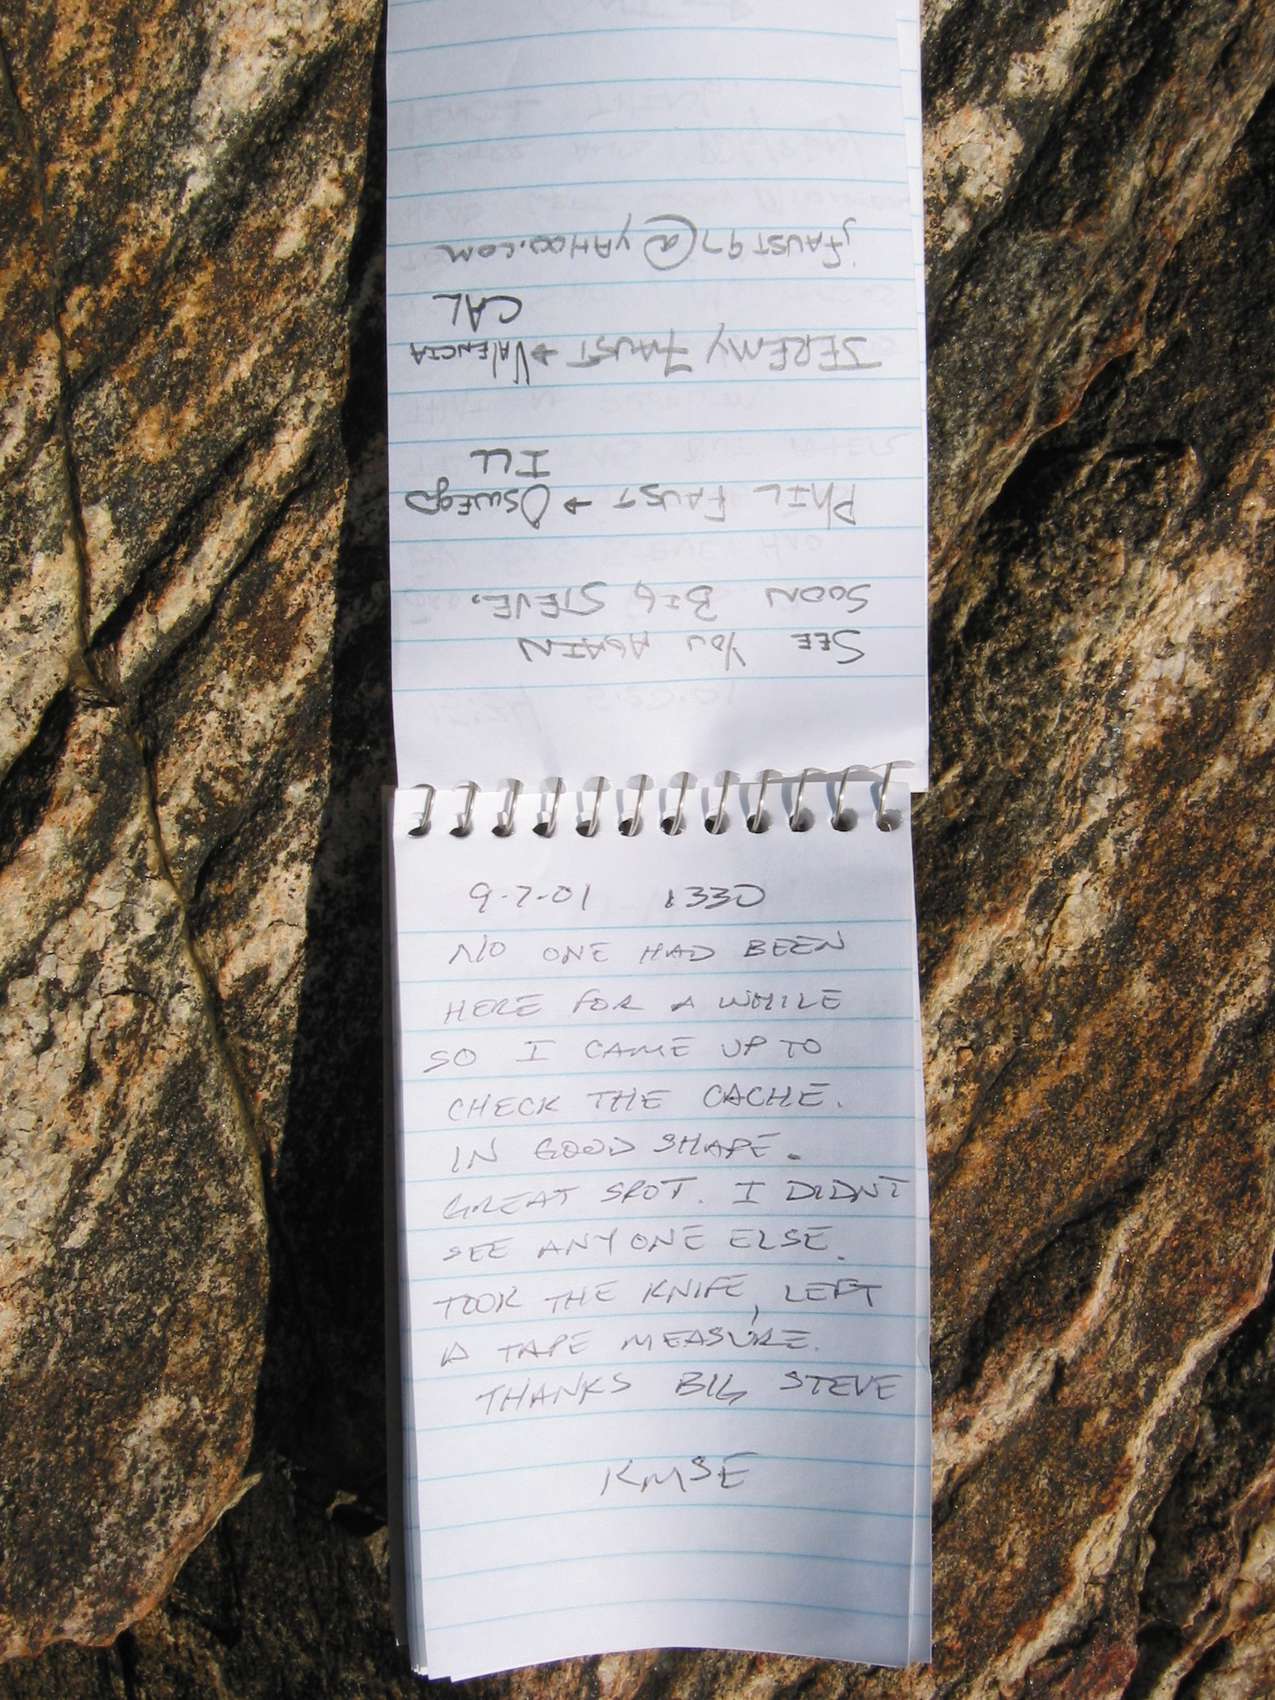 SEE YOU AGAIN
SOON BIG STEVE.
PHIL FAUST → OSWEGO
ILL
JEREMY FAUST → VALENCIA
CAL
jFAUST97@YAHOO.COM
9-7-01 1330
NO ONE HAD BEEN
HERE FOR A WHILE
SO I CAME UP TO
CHECK THE CACHE.
IN GOOD SHAPE.
GREAT SPOT. I DIDNT
SEE ANYONE ELSE.
TOOK THE KNIFE, LEFT
A TAPE MEASURE.
THANKS BIG STEVE
KMSE